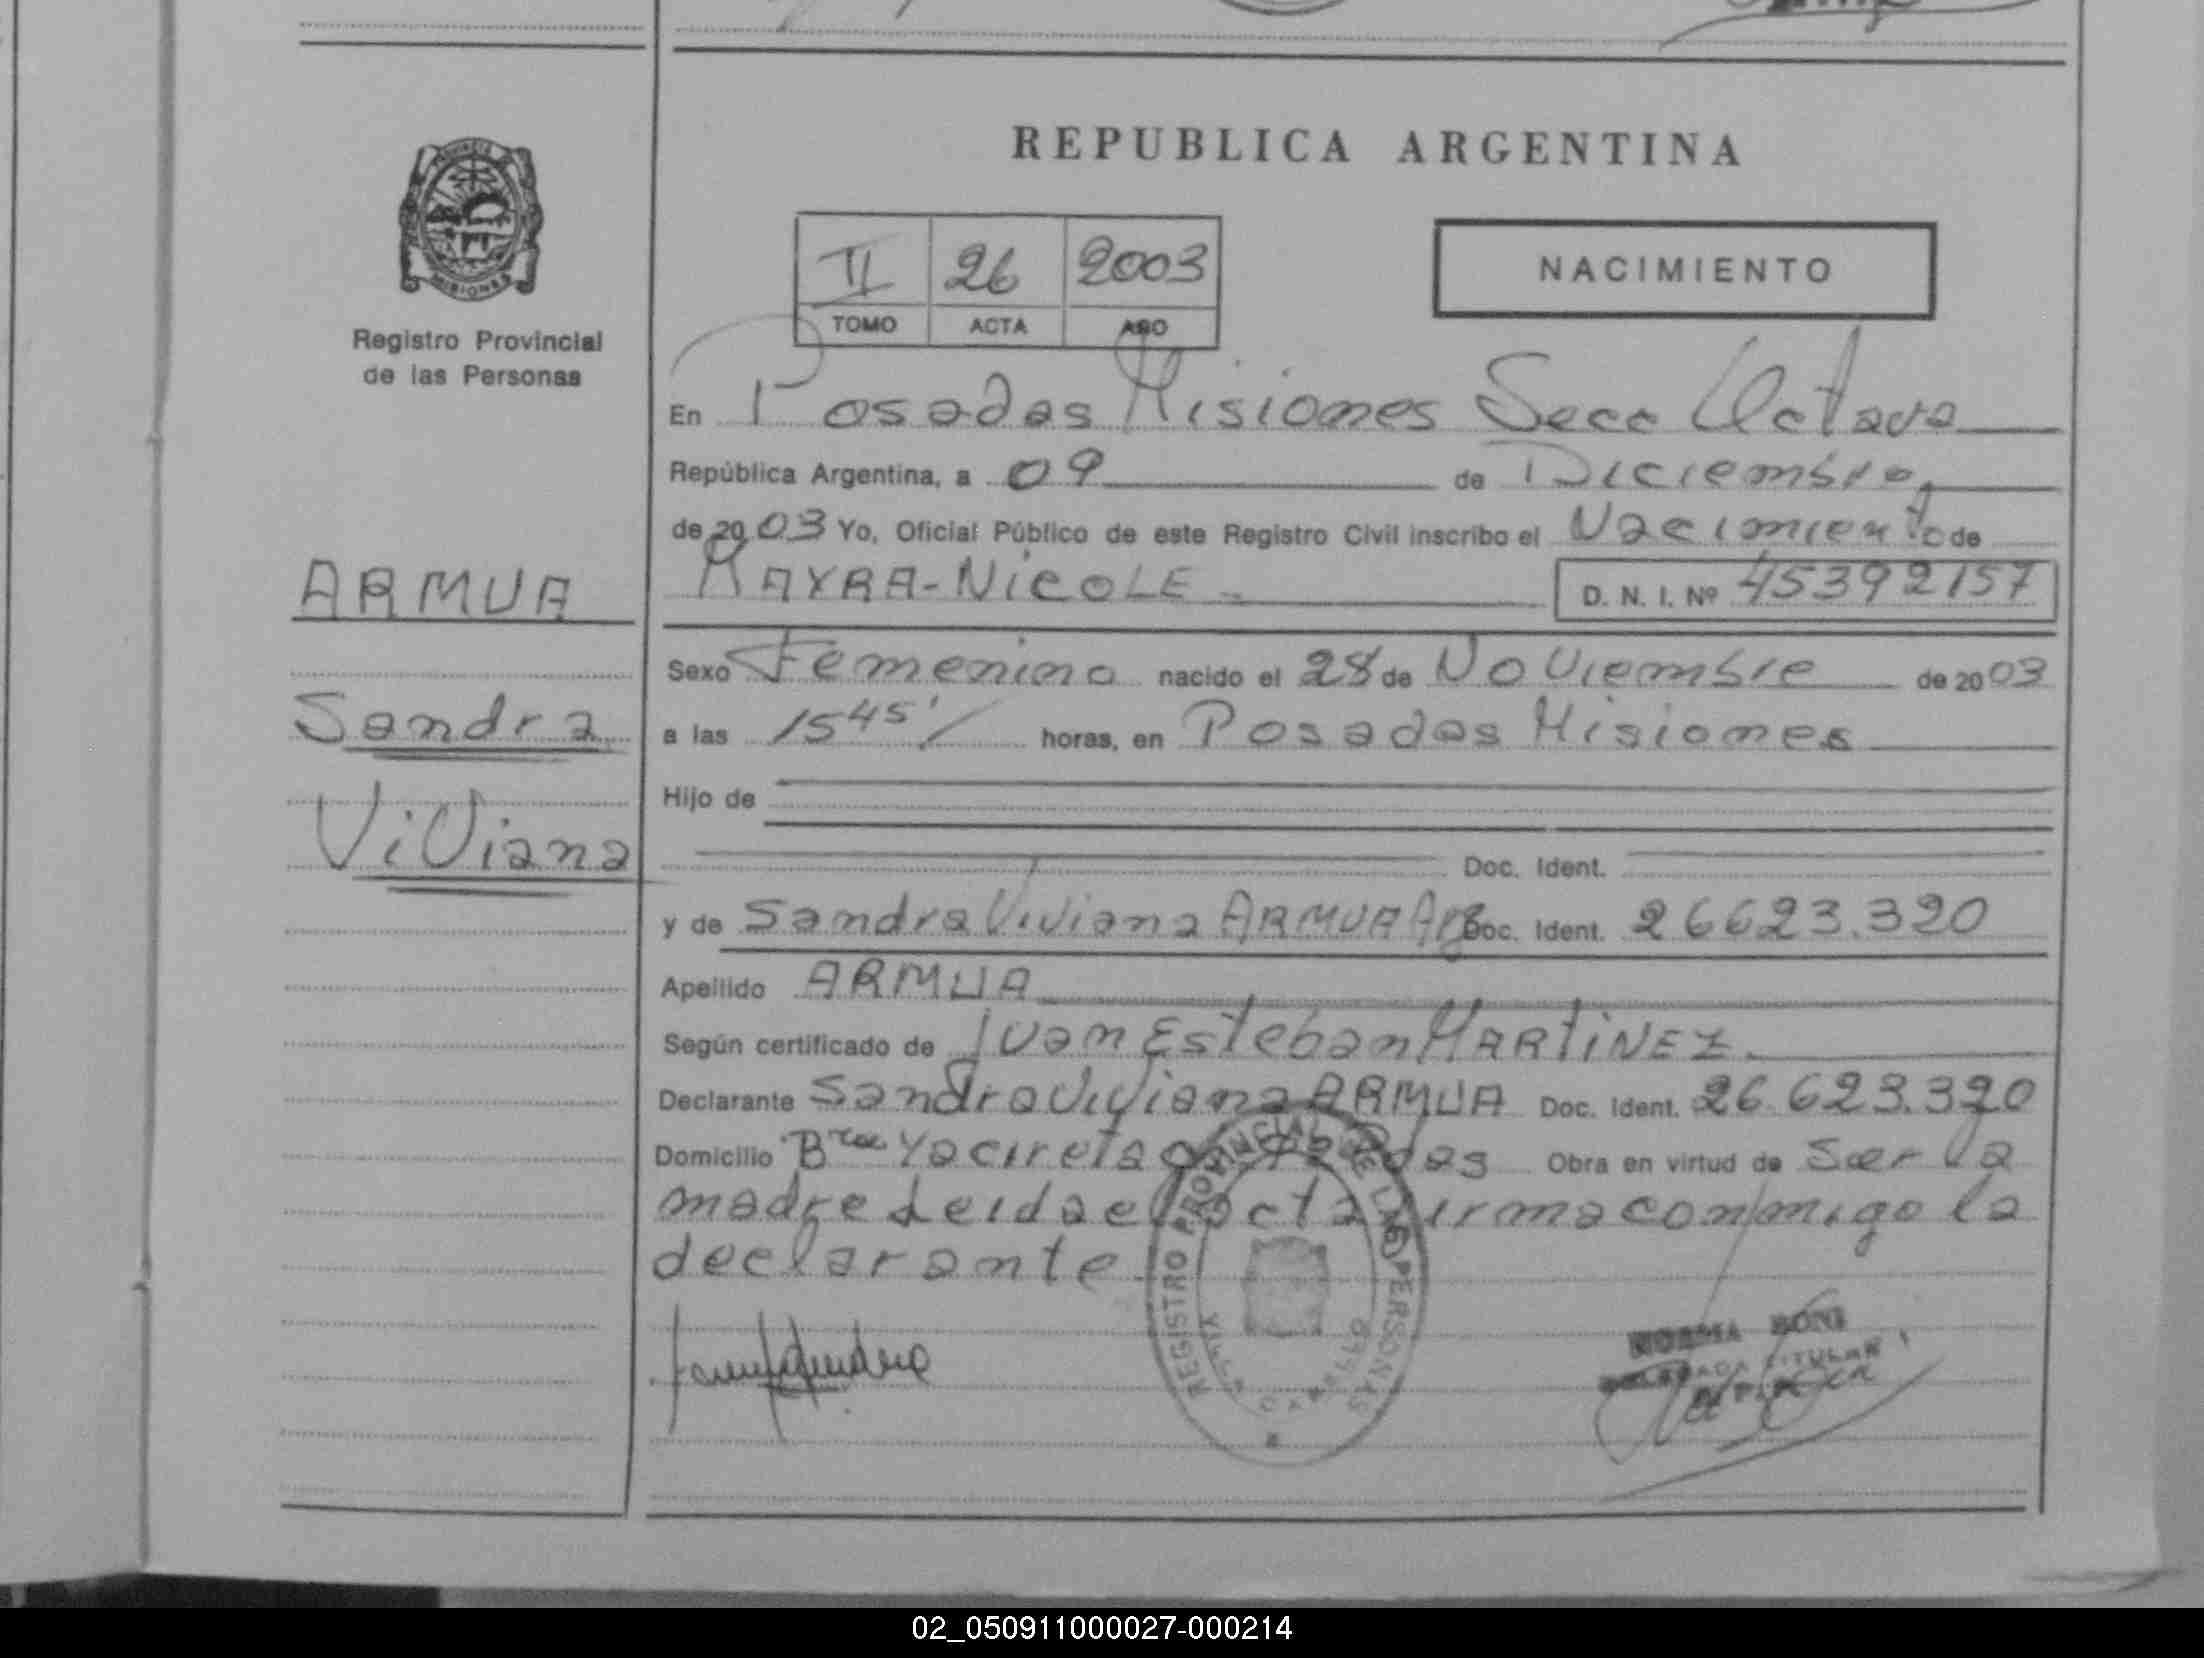 REPUBLICA ARGENTINA
PROVINCIA DE
MISIONES
Registro Provincial
de las Personas
II 26 2003
TOMO ACTA AÑO
NACIMIENTO
En Posadas Misiones Secc Octava
República Argentina, a 09 de Diciembre
de 2003 Yo, Oficial Público de este Registro Civil inscribo el Nacimiento de
MAYRA-NICOLE D. N. I. Nº 45392157
ARMUA
Sandra
Viviana
Sexo Femenino nacido el 28 de Noviembre de 2003
a las 15 45' horas, en Posadas Misiones
Hijo de
Doc. Ident.
y de Sandra Viviana ARMUA Arg Doc. Ident. 26623.320
Apellido ARMUA
Según certificado de Juan Esteban MARTINEZ
Declarante Sandra Viviana ARMUA Doc. Ident. 26.623.320
Domicilio Yacireta Posadas Obra en virtud de Ser la
madre Leida el acta firma conmigo la
declarante
REGISTRO PROVINCIAL DE LAS PERSONAS
NORMA BONI
DELEGADA TITULAR
02_050911000027-000214